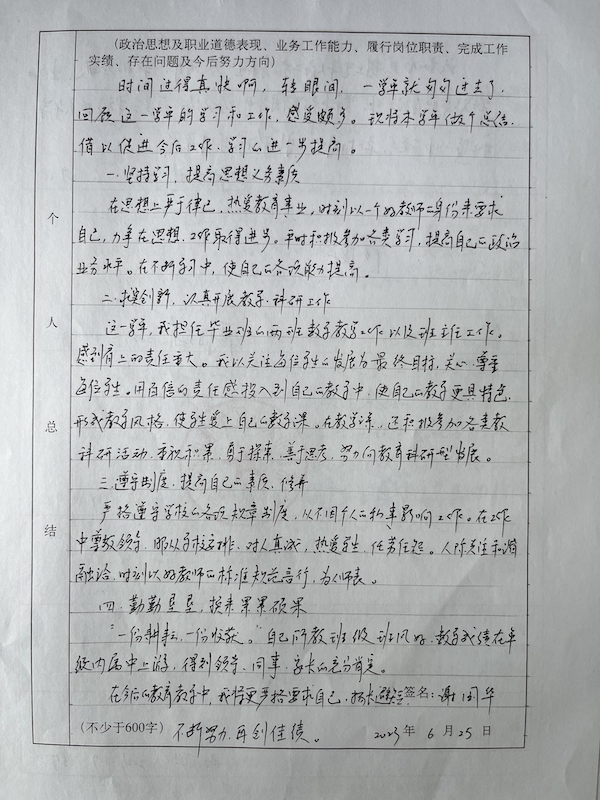 (政治思想及职业道德表现、业务工作能力、履行岗位职责、完成工作
实绩、存在问题及今后努力方向)
时间过得真快啊，转眼间，一学年就匆匆过去了，
回顾这一学年的学习和工作，感受颇多。现将本学年做个总结，
借以促进今后工作、学习的进一步提高。
一.坚持学习，提高思想义务素质
在思想上严于律己，热爱教育事业，时刻以一个好教师的身份来要求
自己，力争在思想、工作取得进步。平时积极参加各类学习，提高自己的政治
业务水平。在不断学习中，使自己的各项能力提高。
二.求实创新，认真开展教学、科研工作
这一学年，我担任毕业班的两班数学教学工作以及班主任工作，
感到肩上的责任重大。我以关注每位学生的发展为最终目标，关心、尊重
每位学生。用百倍的责任感投入到自己的教学中，使自己的教学更具特色，
形成教学风格，使学生爱上自己的数学课。在教学之余，还积极参加各类教
科研活动，重视积累，勇于探索，善于思考，努力向教育科研型发展。
三.遵守制度，提高自己的素质、修养
严格遵守学校的各项规章制度，从不因个人的私事影响工作。在工作
中尊敬领导，服从学校安排，对人真诚，热爱学生，任劳任怨。人际关注和谐
融洽，时刻以好教师的标准规范言行，为人师表。
四.勤勤垦垦，换来累累硕果
"一份耕耘，一份收获。"自己所教班级班风好，教学成绩在年
级内居中上游，得到领导、同事、家长的充分肯定。
在今后的教育教学中，我将更严格要求自己，扬长避短
签名：谢国华
(不少于600字) 不断努力，再创佳绩。
2023年6月25日
个
人
总
结